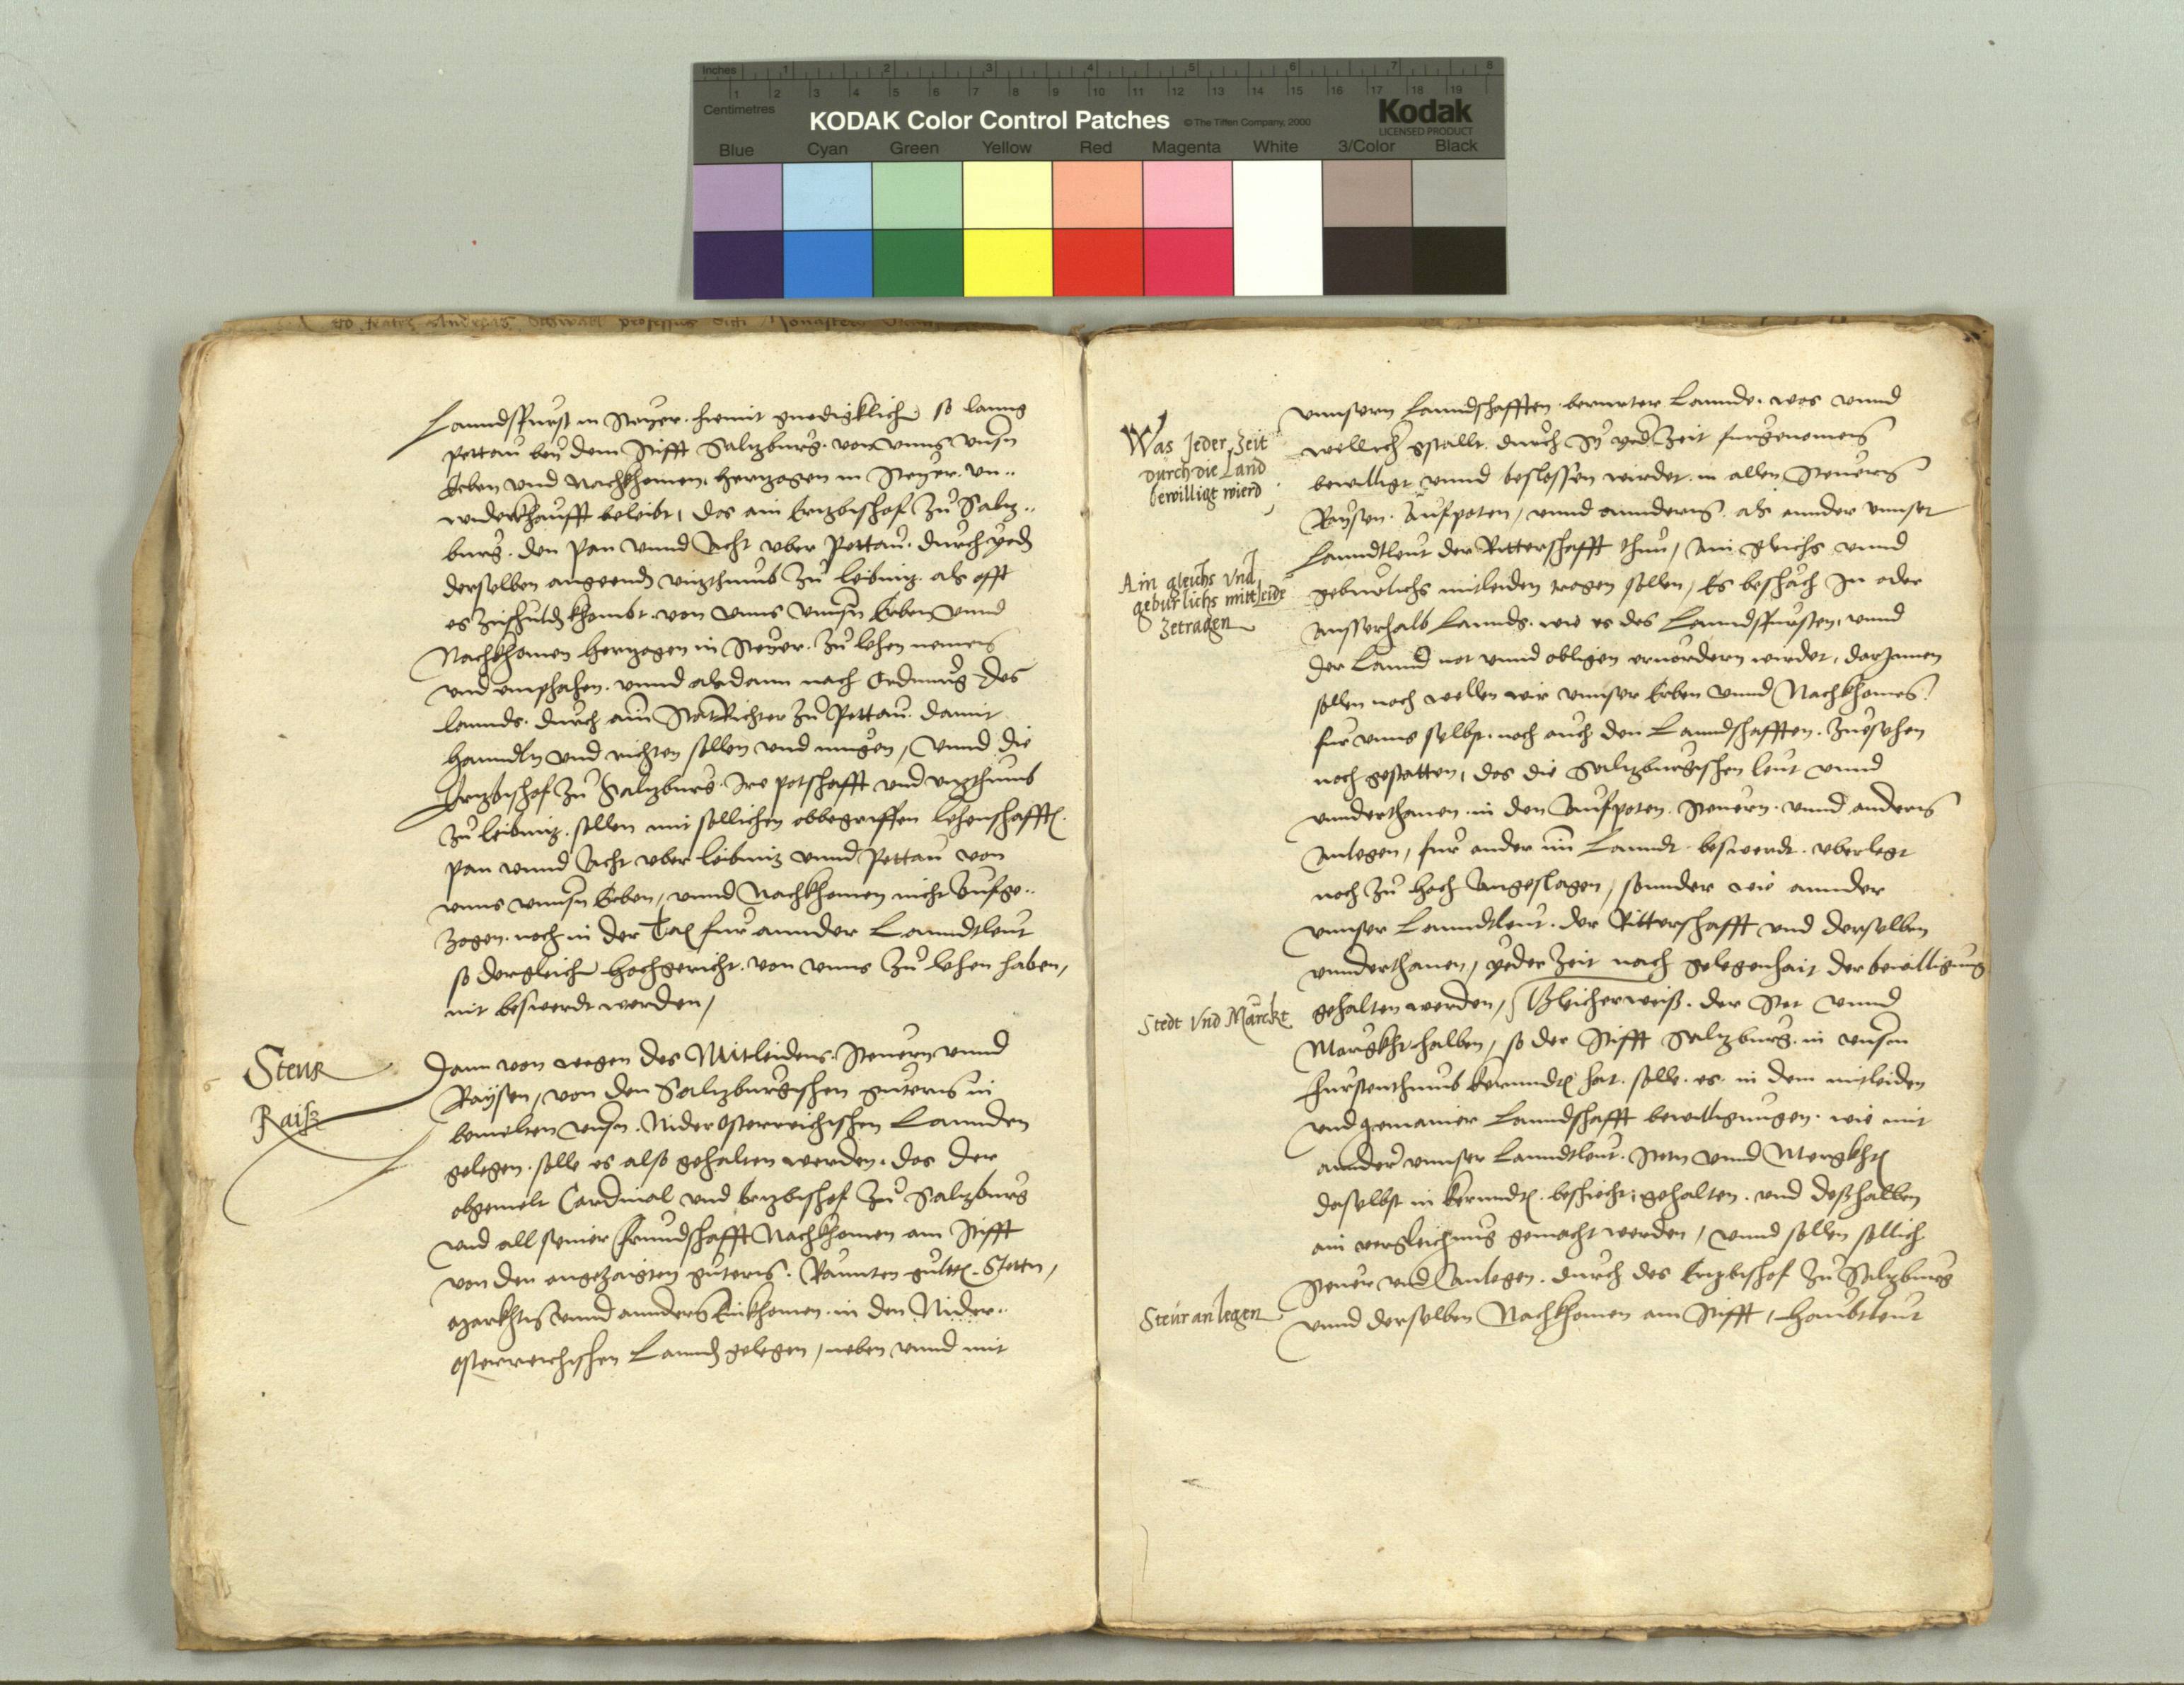 Inches 1 2 3 4 5 6 7 8
1 2 3 4 5 6 7 8 9 10 11 12 13 14 15 16 17 18 19
Centimetres
KODAK Color Control Patches © The Tiffen Company, 2000 Kodak
LICENSED PRODUCT
Blue Cyan Green Yellow Red Magenta White 3/Color Black
Lanndsfurst in Steyer. hiemit gnedigklich so lanng
Pettau bey dem Stifft Saltzburg. von vnns vnsern
Erben vnd Nachkhomen. Hertzogen in Steyer. vn..
widerkhaufft beleibt, das ain Ertzbischof zu Saltz..
burg. den Pan vnnd Acht vber Pettau. durch yeden
derselben angeenden vitzthumb zu Leibnitz. als offt
es zuschulden khombt. von vnns vnnsern Erben vnnd
Nachkhomen Hertzogen in Steyer. zu lehen nemen
vnd emphahen. vnnd alsdann nach Ordnung des
lannds. durch ain StatRichter zu Pettau. damit
hanndln vnd richten sollen vnd mugen, vnnd die
Ertzbischof zu Saltzburg. Ire potschafft vnd vitzthumb
zu Leibnitz. sollen mit sollichen obbegriffen lehenschafften.
Pan vnnd Acht vber Leibnitz vnnd Pettau von
vnns vnnsern Erben, vnnd Nachkhomen nicht Aufge..
zogen. noch in der Tax fur annder Lanndtleut
so dergleichen Hochgericht. von vnns zu lehen haben,
nit beswerdt werden,
Steur
Raiß
Dann von wegen des Mitleidens. Steuern vnnd
Raysen, von den Saltzburgischen guetern in
bemelten vnsern. Niderosterreichischen Lannden
gelegen. solle es also gehalten werden. das der
obgemelt Cardinal vnd Ertzbischof zu Saltzburg
vnd all seiner frundschafft Nachkhomen am Stifft
von den angetzaigten guetern. Rannten gulten. Stetten,
Markhten vnnd anndern Einkhomen. in den Nider..
osterreichischen Lannden gelegen, neben vnnd mit
Was Jeder Zeit
durch die Land
bewilligt wierd
vnnsern Lanndschafften. berurter Lannde. was vnnd
wellicher gstallt. durch Sy yeder Zeit furgenomen
bewilligt vnnd beslossen wirdet. in allen Steuern
Raysen. Aufpoten, vnnd annderm. als annder vnnser
Lanndtleut der Ritterschafft thun, Ain gleichs vnnd
Ain gleichs Vnd
gebürlichs mittleide
Zetragen
geburlichs mitleiden tragen sollen, Es beschach In oder
ausserhalb Lannds. wie es des Lanndsfursten. vnnd
der Lannd not vnnd obligen eruordern wirdet, darzumen
sollen noch wellen wir vnnser Erben vnnd Nachkhomen
fur vnns selbst. noch auch den Lanndschafften. zuesehen
noch gestatten, das die Saltzburgischen leut vnnd
vnnderthanen. in den Aufpoten. Steuern. vnnd andern
Anlegen, fur ander im Lanndt. beswerdt. vberlegt
noch zu hoch Angeslagen, sonnder wie annder
vnnser Lanndtleut. der Ritterschafft vnd derselben
vnnderthanen, yeder Zeit nach gelegenhait der bewilligung
Stedt Vnd Märckt
gehalten werden, Gleicherweiß. der Stet vnnd
Margkht halben, so der Stifft Saltzburg. in vnsern
furstenthumb Kernndten hat. solle. es. in dem mitleiden
vnd gemainer Lanndschafft bewilligungen. wie mit
annder vnnser Lanndtleut. Steten vnnd Margkhten
daselbst in Kernndten. beschicht, gehalten. vnd deßhalben
ain vergleichnus gemacht werden, vnnd sollen sollich
Steur anlegen
Steur vnd Anlegen. durch des Ertzbischof zu Saltzburg
vnnd derselben Nachkhomen am Stifft, Haubtleut